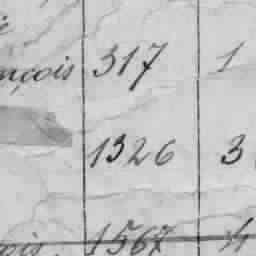 nçois 317 1
1326 3
ois. 1567 4